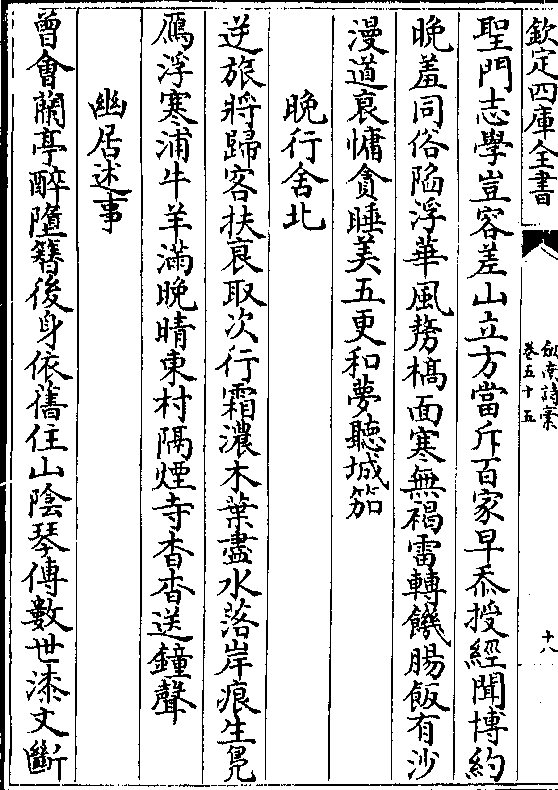 欽定四庫全書
劍南詩稾
卷五十五
十八
聖門志學豈容差山立方當斥百家早忝授經聞博約
晚羞同俗陷浮華風剺槁面寒無褐雷轉饑腸飯有沙
漫道衰慵貪睡美五更和夢聽城笳
晚行舍北
逆旅將歸客扶衰取次行霜濃木葉盡水落岸痕生鳧
鴈浮寒浦牛羊滿晚晴東村隔煙寺杳杳送鐘聲
幽居述事
曾會蘭亭醉墮簪後身依舊住山陰琴傳數世漆文斷